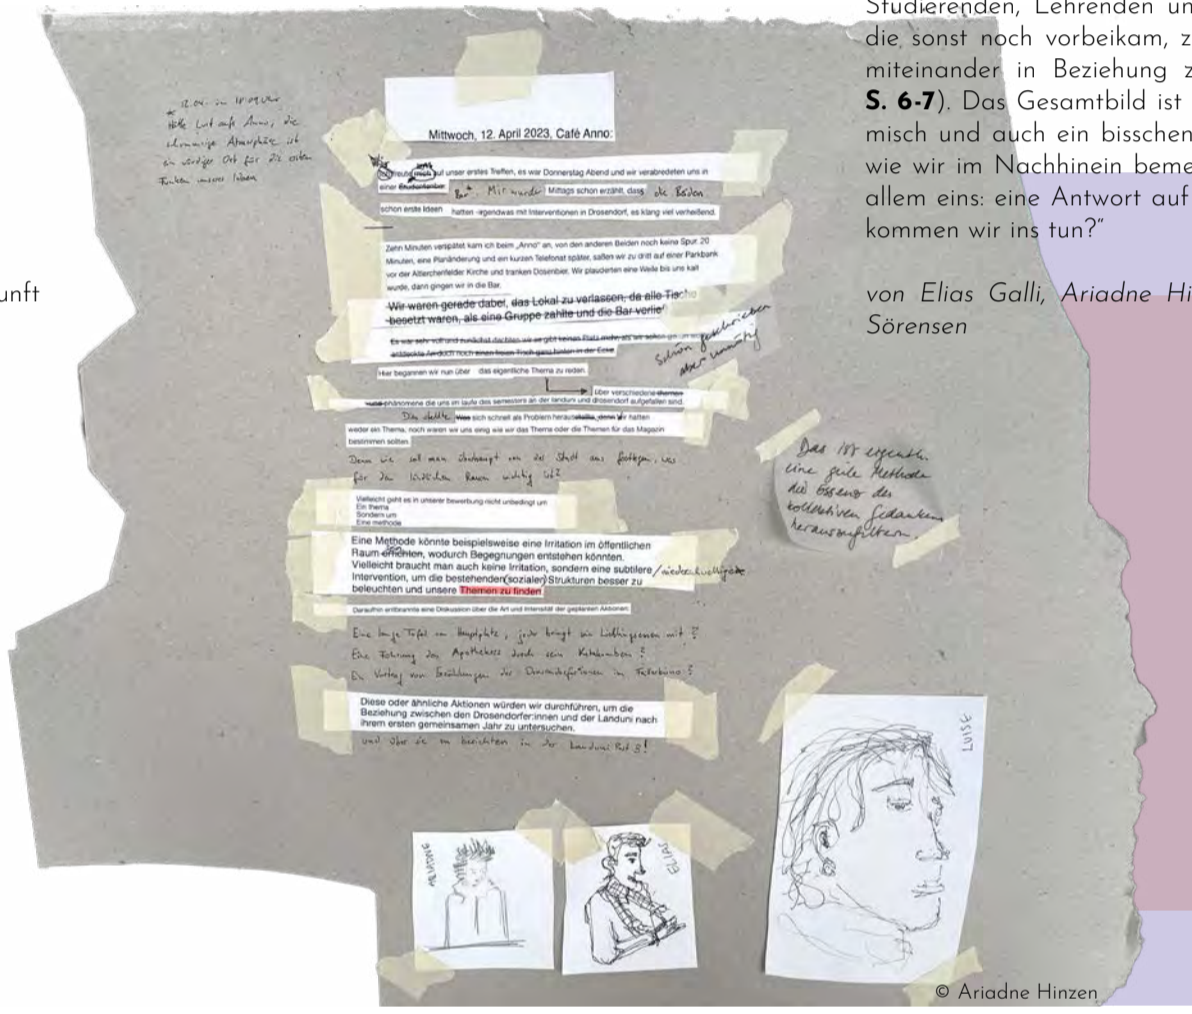 Studierenden, Lehrenden un
die sonst noch vorbeikam, z
miteinander in Beziehung z
S. 6-7). Das Gesamtbild ist
misch und auch ein bisschen
wie wir im Nachhinein beme
allem eins: eine Antwort auf
kommen wir ins tun?"
von Elias Galli, Ariadne Hi
Sörensen
unft
12.04. um
die
Atmosphäre ist
ein würdiger Ort für die ersten
Funken unserer Ideen
Mittwoch, 12. April 2023, Café Anno:
auf unser erstes Treffen, es war Donnerstag Abend und wir verabredeten uns in
einer Studentenbar Bar*. Mir wurde Mittags schon erzählt, dass die Beiden
schon erste Ideen hatten -irgendwas mit Interventionen in Drosendorf, es klang viel verheißend.
Zehn Minuten verspätet kam ich beim „Anno" an, von den anderen Beiden noch keine Spur. 20
Minuten, eine Planänderung und ein kurzen Telefonat später, saßen wir zu dritt auf einer Parkbank
vor der Altlerchenfelder Kirche und tranken Dosenbier. Wir plauderten eine Weile bis uns kalt
wurde, dann gingen wir in die Bar.
Wir waren gerade dabei, das Lokal zu verlassen, da alle Tische
besetzt waren, als eine Gruppe zahlte und die Bar verließ
Es war sehr voll und zunächst dachten wir es gibt keinen Platz mehr, als wir schon
entdeckte doch noch einen freien Tisch ganz hinten in der Ecke
Schön geschrieben
aber unnötig
Hier begannen wir nun über das eigentliche Thema zu reden.
über verschiedene themen
und phänomene die uns im laufe des semesters an der landuni und drosendorf aufgefallen sind.
Das stellte Was sich schnell als Problem herausstellte, denn Wir hatten
weder ein Thema, noch waren wir uns einig wie wir das Thema oder die Themen für das Magazin
bestimmen sollten.
Denn wie soll man überhaupt von der Stadt aus festlegen, was
für den ländlichen Raum wichtig ist?
Vielleicht geht es in unserer bewerbung nicht unbedingt um
Ein thema
Sondern um
Eine methode
Eine Methode könnte beispielsweise eine Irritation im öffentlichen
Raum errichten, wodurch Begegnungen entstehen könnten.
Vielleicht braucht man auch keine Irritation, sondern eine subtilere/niederschwelligere
Intervention, um die bestehenden(sozialen)Strukturen besser zu
beleuchten und unsere Themen zu finden.
Daraufhin entbrannte eine Diskussion über die Art und Intensität der geplanten Aktionen:
Das ist eigentlich
eine geile Methode
die Essenz des
kollektiven Gedankens
herauszufiltern.
Eine lange Tafel am Hauptplatz, jeder bringt sein Lieblingsessen mit?
Eine Führung des Apothekers durch sein Katakomben?
Ein Vortrag von Erzählungen der Drosendorfer*innen im
Diese oder ähnliche Aktionen würden wir durchführen, um die
Beziehung zwischen den Drosendorfer:innen und der Landuni nach
ihrem ersten gemeinsamen Jahr zu untersuchen.
und über sie zu berichten in der Landuni Post 3!
ARIADNE
ELIAS
LUISE
© Ariadne Hinzen